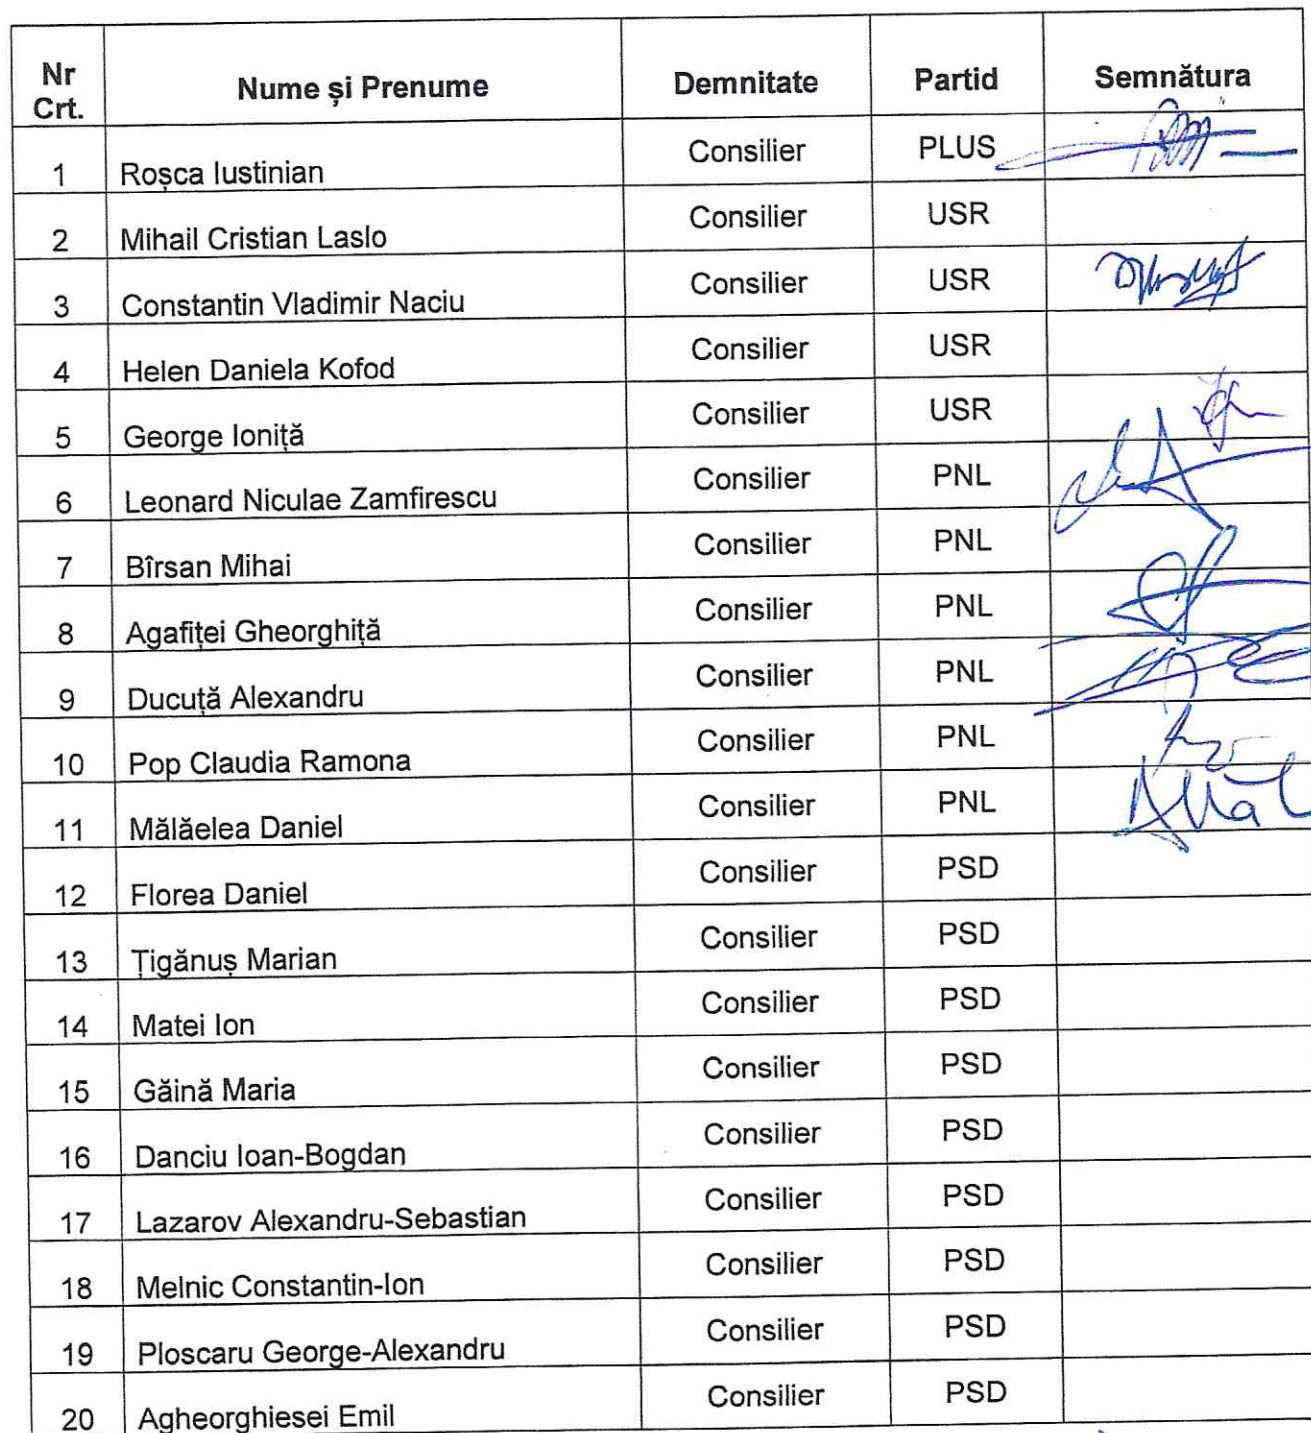 Nr Crt. Nume și Prenume Demnitate Partid Semnătura
1 Roșca Iustinian Consilier PLUS
2 Mihail Cristian Laslo Consilier USR
3 Constantin Vladimir Naciu Consilier USR
4 Helen Daniela Kofod Consilier USR
5 George Ioniță Consilier USR
6 Leonard Niculae Zamfirescu Consilier PNL
7 Bîrsan Mihai Consilier PNL
8 Agafiței Gheorghiță Consilier PNL
9 Ducuță Alexandru Consilier PNL
10 Pop Claudia Ramona Consilier PNL
11 Mălăelea Daniel Consilier PNL
12 Florea Daniel Consilier PSD
13 Țigănuș Marian Consilier PSD
14 Matei Ion Consilier PSD
15 Găină Maria Consilier PSD
16 Danciu Ioan-Bogdan Consilier PSD
17 Lazarov Alexandru-Sebastian Consilier PSD
18 Melnic Constantin-Ion Consilier PSD
19 Ploscaru George-Alexandru Consilier PSD
20 Agheorghiesei Emil Consilier PSD